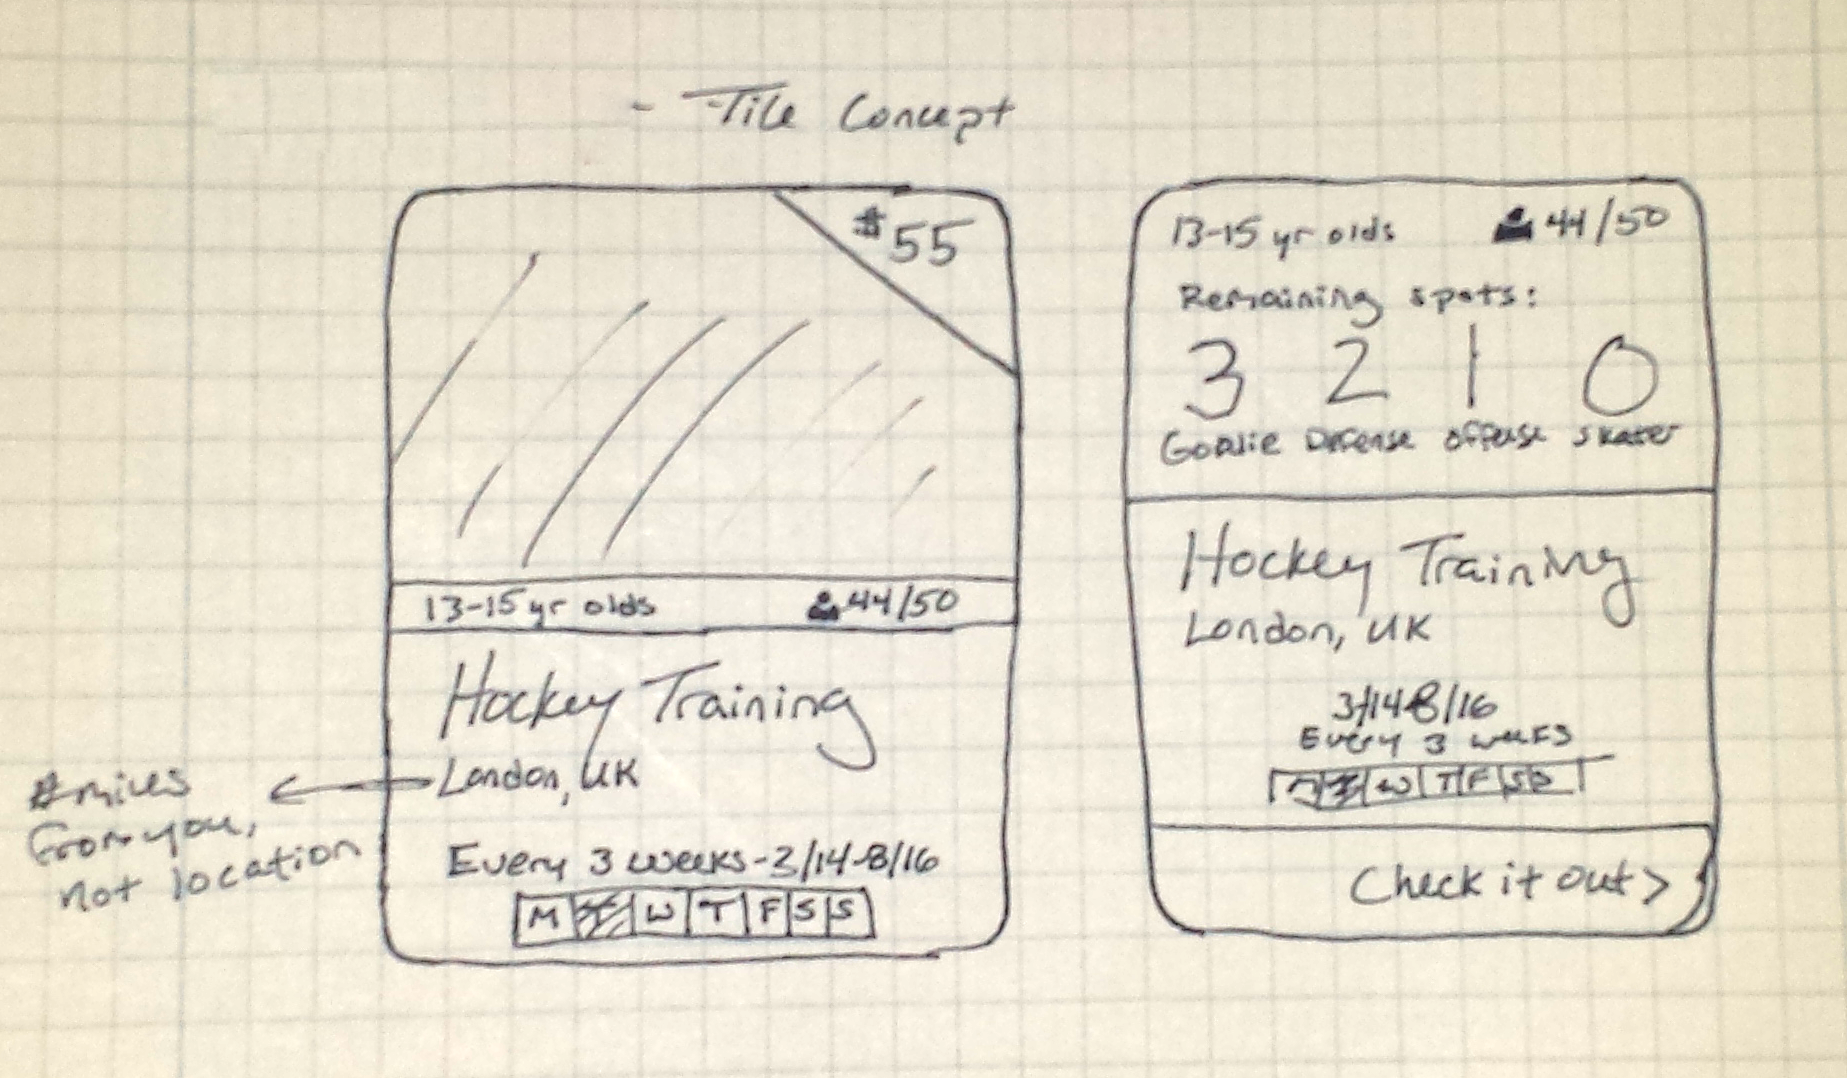 - Tile Concept
$55
13-15 yr olds 44/50
Hockey Training
London, UK
# miles
from you,
not location
Every 3 weeks - 3/14-8/16
M T W T F S S
13-15 yr olds 44/50
Remaining spots:
3 2 1 0
Goalie Defense offense skater
Hockey Training
London, UK
3/14-8/16
Every 3 weeks
M T W T F S S
Check it out >